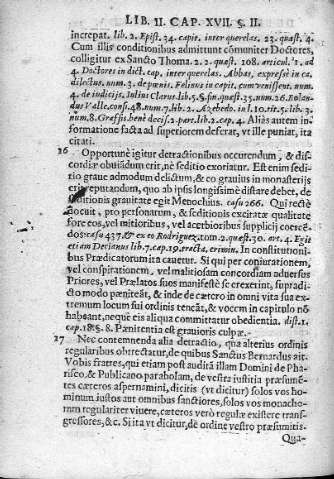 LIB. II. CAP. XVII. §. II.
increpat. lib. 2. Epist. 34. capit. inter querelas. 23. quæst. 4.
Cum illis conditionibus admittunt cōmuniter Doctores,
colligitur ex Sancto Thoma. 2. 2. quæst. 108. articul. 1. ad
4. Doctores in dict. cap. inter querelas. Abbas, expresse in ca.
dilectus. num. 3. de pœnis. Felinus in capit. cum venissent. num.
4. de iudicijs. Iulius Clarus lib. 5. §. fin. quæst. 35. num. 26. Bolan-
dus Valle. consi. 48. num. 7. lib. 2. Azebedo. in l. 10. tit. 5. lib. 3.
num. 8. Graffis benè decis. 2. par. lib. 2. cap. 4. Aliàs autem in-
formatione facta ad superiorem deferat, vt ille puniat, ita
citati.
26 Opportunè igitur detractionibus occurrendum, & dis-
cordiæ obuiādum erit, ne seditio exoriatur. Est enim sedi-
tio graue admodum delictum, & eo grauius in monasterijs
reputandum, quo ab ipsis longissimè distare debet, de
seditionis grauitate egit Menochius. casu 266. Qui rectè
docuit, pro personarum, & seditionis excitatæ qualitate
fore eos, vel mitioribus, vel acerbioribus supplicij coercē-
dos casu 437. & ex eo Rodriguez. tom. 2. quæst. 30. art. 4. Egit
etiam Decianus lib. 7. cap. 19. tracta. crimin. In constitutioni-
bus Prædicatorum ita cauetur. Si qui per coniurationem,
vel conspirationem, vel malitiosam concordiam aduersus
Priores, vel Prælatos suos manifestè se erexerint, supradi-
cto modo pœniteāt, & inde de cætero in omni vita sua ex-
tremum locum sui ordinis teneāt, & vocem in capitulo nō
habeant, neque eis aliqua committatur obedientia. dist. 1.
cap. 18. §. 8. Pœnitentia est grauioris culpæ.
27 Nec contemnenda alia detractio, qua alterius ordinis
regularibus obtrectatur, de quibus Sanctus Bernardus ait.
Vobis fratres, qui etiam post auditā illam Domini de Pha-
risæo, & Publicano parabolam, de vestra iustitia præsumē-
tes cæteros aspernamini, dicitis (vt dicitur) solos vos ho-
minum iustos aut omnibus sanctiores, solos vos monacho-
rum regulariter viuere, cæteros verò regulæ existere trans-
gressores, &c. Si ita vt dicitur, de ordine vestro præsumitis.
Qua-